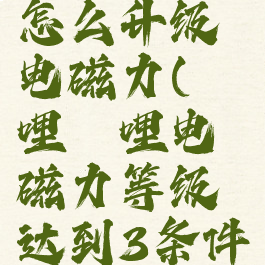 怎么升级
电磁力(
哩 哩电
磁力等级
达到3条件